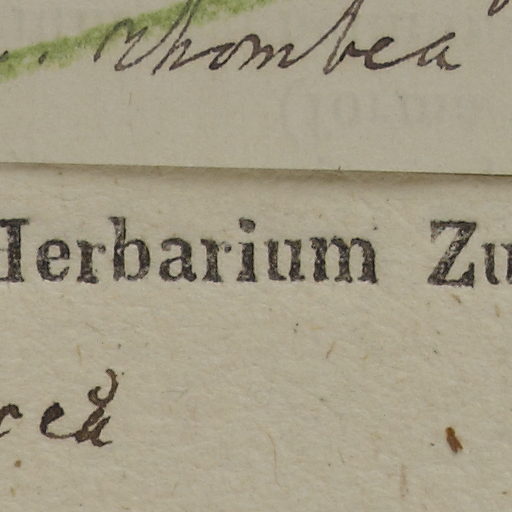 rhombea
Herbarium Zu
ceă